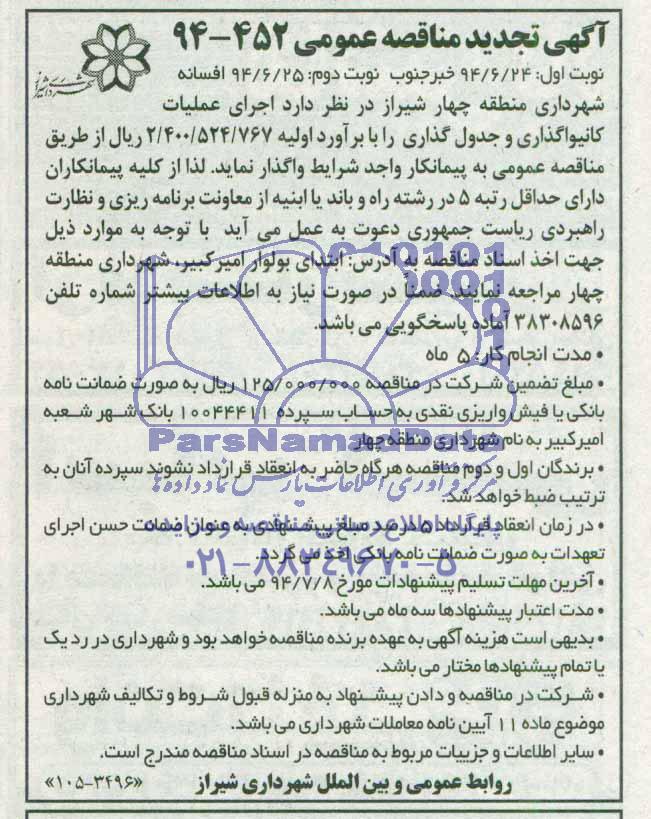 آگهی تجدید مناقصه عمومی ۴۵۲-۹۴
شهرداری شیراز
نوبت اول: ۹۴/۶/۲۴ خبرجنوب نوبت دوم: ۹۴/۶/۲۵ افسانه
شهرداری منطقه چهار شیراز در نظر دارد اجرای عملیات
کانیواگذاری و جدول گذاری را با برآورد اولیه ۲/۴۰۰/۵۲۴/۷۶۷ ریال از طریق
مناقصه عمومی به پیمانکار واجد شرایط واگذار نماید. لذا از کلیه پیمانکاران
دارای حداقل رتبه ۵ در رشته راه و باند یا ابنیه از معاونت برنامه ریزی و نظارت
راهبردی ریاست جمهوری دعوت به عمل می آید با توجه به موارد ذیل
جهت اخذ اسناد مناقصه به آدرس: ابتدای بولوار امیرکبیر، شهرداری منطقه
چهار مراجعه نمایند. ضمناً در صورت نیاز به اطلاعات بیشتر شماره تلفن
۳۸۳۰۸۵۹۶ آماده پاسخگویی می باشد.
• مدت انجام کار: ۵ ماه
• مبلغ تضمین شرکت در مناقصه ۱۲۵/۰۰۰/۰۰۰ ریال به صورت ضمانت نامه
بانکی یا فیش واریزی نقدی به حساب سپرده ۱۰۰۴۴۴۱۱ بانک شهر شعبه
امیرکبیر به نام شهرداری منطقه چهار
ParsNamadData
• برندگان اول و دوم مناقصه هرگاه حاضر به انعقاد قرارداد نشوند سپرده آنان به
ترتیب ضبط خواهد شد.
مرکز فرآوری اطلاعات پارس نماد داده ها
• در زمان انعقاد قرارداد ۵ درصد مبلغ پیشنهادی به عنوان ضمانت حسن اجرای
پایگاه اطلاع رسانی مناقصه و مزایده
تعهدات به صورت ضمانت نامه بانکی اخذ می گردد.
۰۲۱-۸۸۳۴۹۶۷۰-۵
• آخرین مهلت تسلیم پیشنهادات مورخ ۹۴/۷/۸ می باشد.
• مدت اعتبار پیشنهادها سه ماه می باشد.
• بدیهی است هزینه آگهی به عهده برنده مناقصه خواهد بود و شهرداری در رد یک
یا تمام پیشنهادها مختار می باشد.
• شرکت در مناقصه و دادن پیشنهاد به منزله قبول شروط و تکالیف شهرداری
موضوع ماده ۱۱ آیین نامه معاملات شهرداری می باشد.
• سایر اطلاعات و جزییات مربوط به مناقصه در اسناد مناقصه مندرج است.
روابط عمومی و بین الملل شهرداری شیراز «۱۰۵-۳۴۹۶»